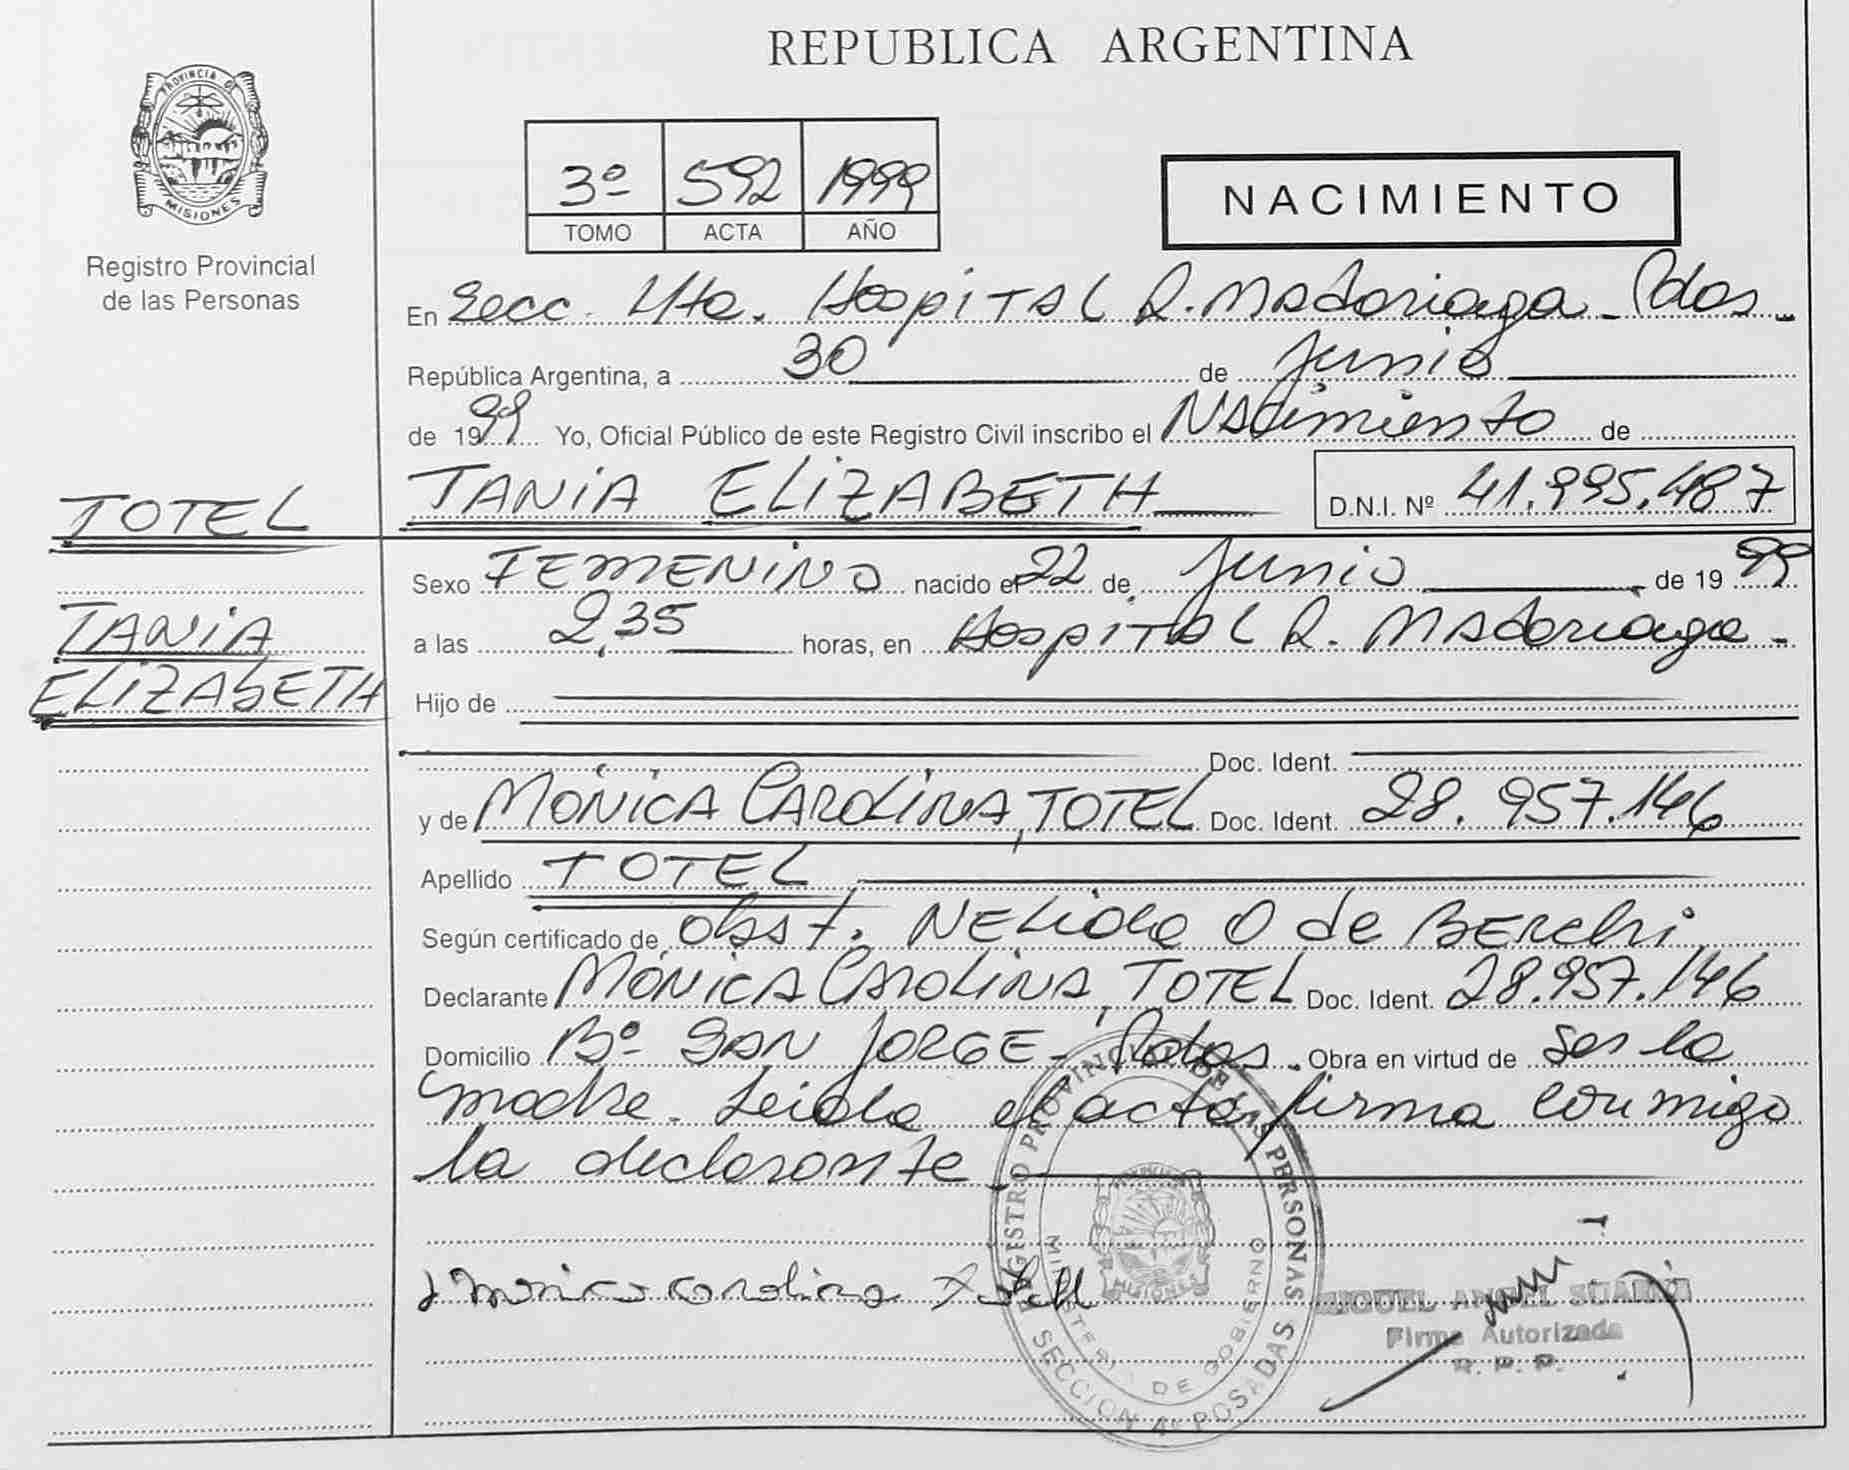 REPUBLICA ARGENTINA
PROVINCIA DE
MISIONES
Registro Provincial
de las Personas
3º 592 1999
TOMO ACTA AÑO
NACIMIENTO
En Secc. 4ta. Hospital R. Madariaga - Pdas -
República Argentina, a 30 de Junio
de 1999 Yo, Oficial Público de este Registro Civil inscribo el Nacimiento de
TOTEL
TANIA ELIZABETH D.N.I. Nº 41.995.487
Sexo FEMENINO nacido el 22 de Junio de 1999
TANIA
a las 2,35 horas, en Hospital R. Madariaga -
ELIZABETH
Hijo de
Doc. Ident.
y de MONICA CAROLINA, TOTEL Doc. Ident. 28.957.146
Apellido TOTEL
Según certificado de Obst. NELIDA O de BERCHI
Declarante MONICA CAROLINA, TOTEL Doc. Ident. 28.957.146
Domicilio Bº SAN JORGE - Pdas. Obra en virtud de ser la
madre. Leida el acta firma conmigo
la declarante
REGISTRO PROVINCIAL DE LAS PERSONAS
MINISTERIO DE GOBIERNO
SECCION 4ª POSADAS
Monica Carolina
MIGUEL ANGEL
Firma Autorizada
R. P. P.